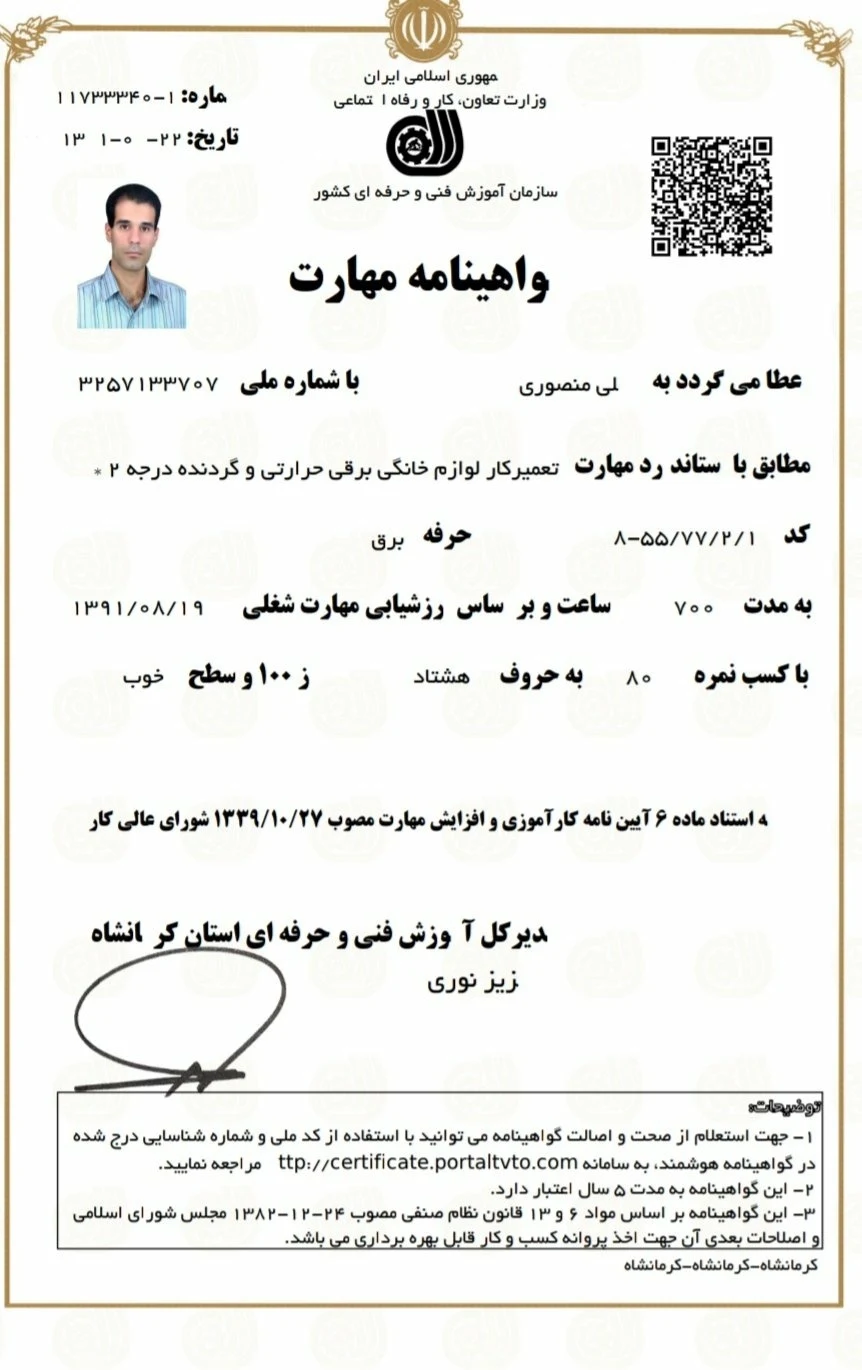 مهوری اسلامی ایران
وزارت تعاون، کار و رفاه ا تماعی
ماره: ۱۱۷۳۳۳۴۰-۱
تاریخ: ۲۲- ۰-۱ ۱۳
سازمان آموزش فنی و حرفه ای کشور
واهینامه مهارت
عطا می گردد به لی منصوری با شماره ملی ۳۲۵۷۱۳۳۷۰۷
مطابق با ستاند رد مهارت تعمیرکار لوازم خانگی برقی حرارتی و گردنده درجه ۲ *
کد ۸-۵۵/۷۷/۲/۱ حرفه برق
به مدت ۷۰۰ ساعت و بر ساس رزشیابی مهارت شغلی ۱۳۹۱/۰۸/۱۹
با کسب نمره ۸۰ به حروف هشتاد ز ۱۰۰ و سطح خوب
ه استناد ماده ۶ آیین نامه کارآموزی و افزایش مهارت مصوب ۱۳۳۹/۱۰/۲۷ شورای عالی کار
دیرکل آ وزش فنی و حرفه ای استان کر انشاه
زیز نوری
توضیحات:
۱- جهت استعلام از صحت و اصالت گواهینامه می توانید با استفاده از کد ملی و شماره شناسایی درج شده
در گواهینامه هوشمند، به سامانه ttp://certificate.portaltvto.com مراجعه نمایید.
۲- این گواهینامه به مدت ۵ سال اعتبار دارد.
۳- این گواهینامه بر اساس مواد ۶ و ۱۳ قانون نظام صنفی مصوب ۲۴-۱۲-۱۳۸۲ مجلس شورای اسلامی
و اصلاحات بعدی آن جهت اخذ پروانه کسب و کار قابل بهره برداری می باشد.
کرمانشاه-کرمانشاه-کرمانشاه